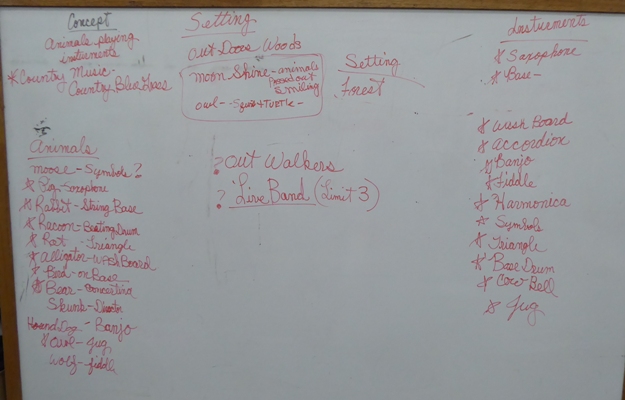 Concept
Animals playing
instruments
*Country Music-
Country, Blue Grass
Setting
out Doors Woods
moon Shine - animals
Passed out
smiling
owl- -Squid + TURTLE -
Setting
Forest
? Out Walkers
? Live Band (Limit 3)
Animals
moose - Symbols?
* Pig - Saxophone
* Rabbit - String Base
* Racoon - Beating Drum
* Rat - Triangle
* alligator - Wash Board
* Bird - on Base
* Bear - Concertina
Skunk - Director
Hound Dog - Banjo
* Owl - Jug
Wolf - fiddle
Instruments
* Saxophone
* Base -
* Wash Board
* Accordion
* Banjo
* Fiddle
* Harmonica
* Symbols
* Triangle
* Base Drum
* Cow Bell
* Jug